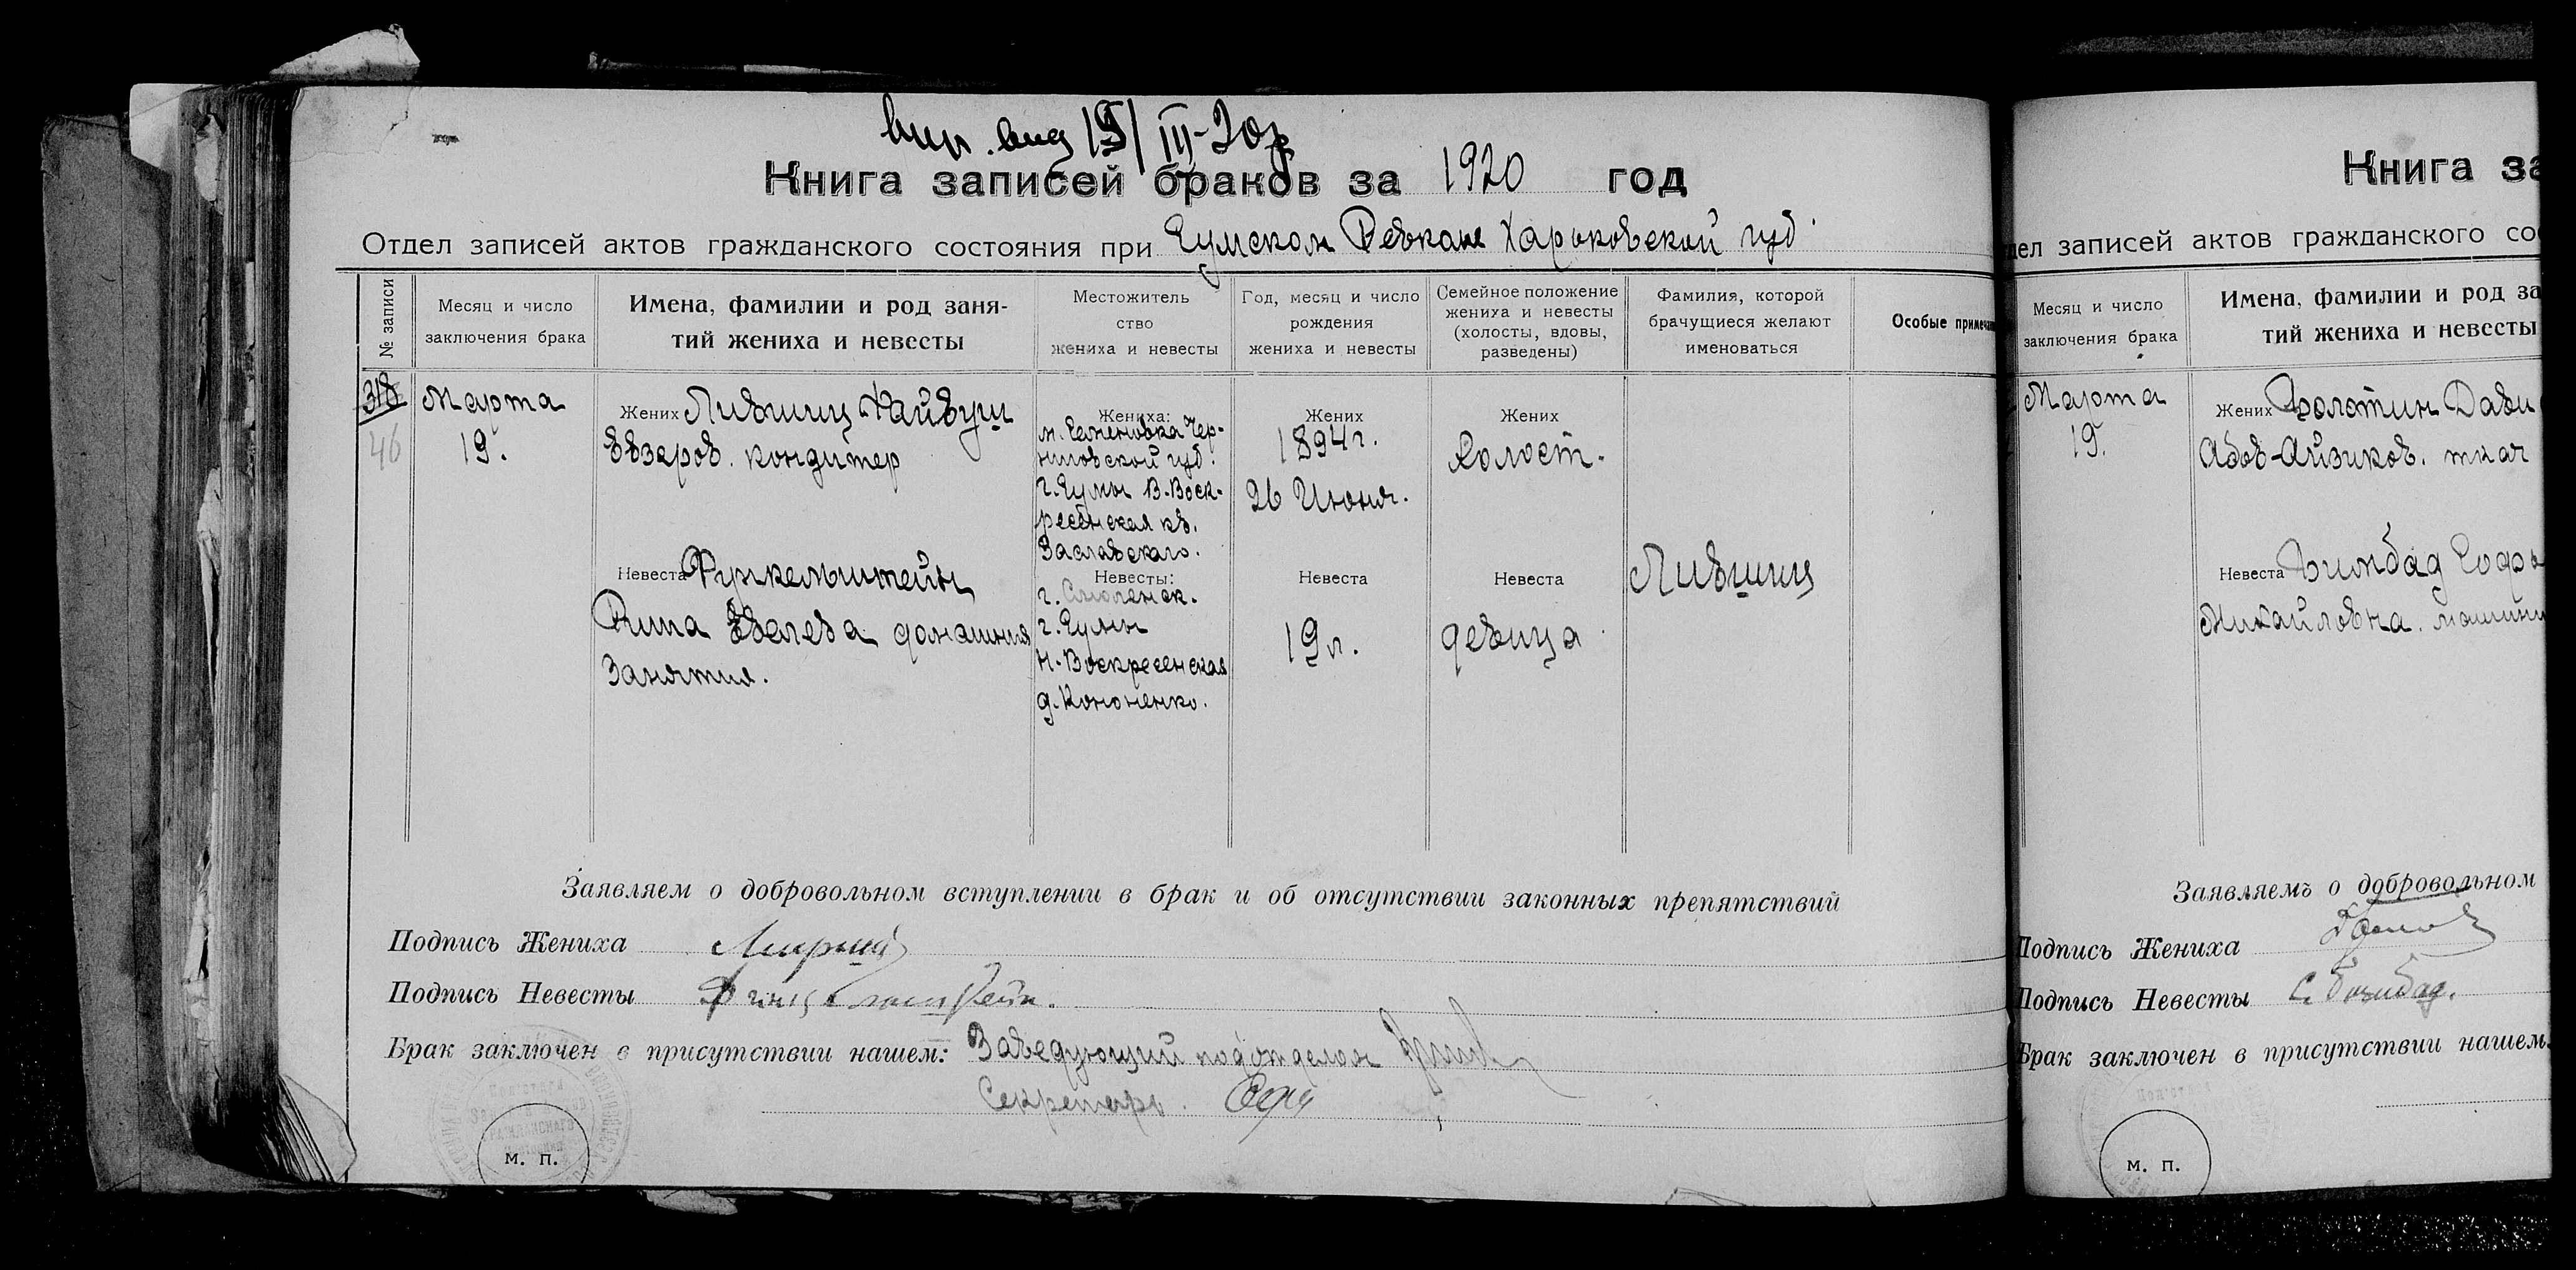 вип. вид 19/III-20г
Книга записей браков за 1920 год
Отдел записей актов гражданского состояния при Сумском Ревкоме Харьковской губ.
№ записи
Месяц и число
заключения брака
Имена, фамилии и род заня-
тий жениха и невесты
Местожитель
ство
жениха и невесты
Год, месяц и число
рождения
жениха и невесты
Семейное положение
жениха и невесты
(холосты, вдовы,
разведены)
Фамилия, которой
брачущиеся желают
именоваться
Особые примеча
318
46
Марта
19.
Жених Лившиц Файвуш
Евзеров. кондитер
Невеста Финкельштейн
Рипа Евелева домашния
Занятия.
Жениха:
м. Семеновка Чер-
ниговской губ.
г. Сумы В.-Воск-
ресенская кв.
Заславскаго.
Невесты:
г. Смоленск.
г. Сумы
Н.-Воскресенская
д. Кононенко.
Жених
1894 г.
26 Июня.
Невеста
19 л.
Жених
Холост.
Невеста
девица
Лившиц
Заявляем о добровольном вступлении в брак и об отсутствии законных препятствий
Подпись Жениха
Подпись Невесты
Брак заключен в присутствии нашем: Заведующий подотделом
Секретарь.
м. п.
Книга за
дел записей актов гражданского со
Месяц и число
заключения брака
Имена, фамилии и род за
тий жениха и невесты
Марта
19.
Жених Болотин Дави
Абов-Айзиков. ткач
Невеста Бимбад Софь
Михайловна.
Заявляемъ о добровольном
Подпись Жениха
Подпись Невесты С. Бимбад.
Брак заключен в присутствии нашем
м. п.